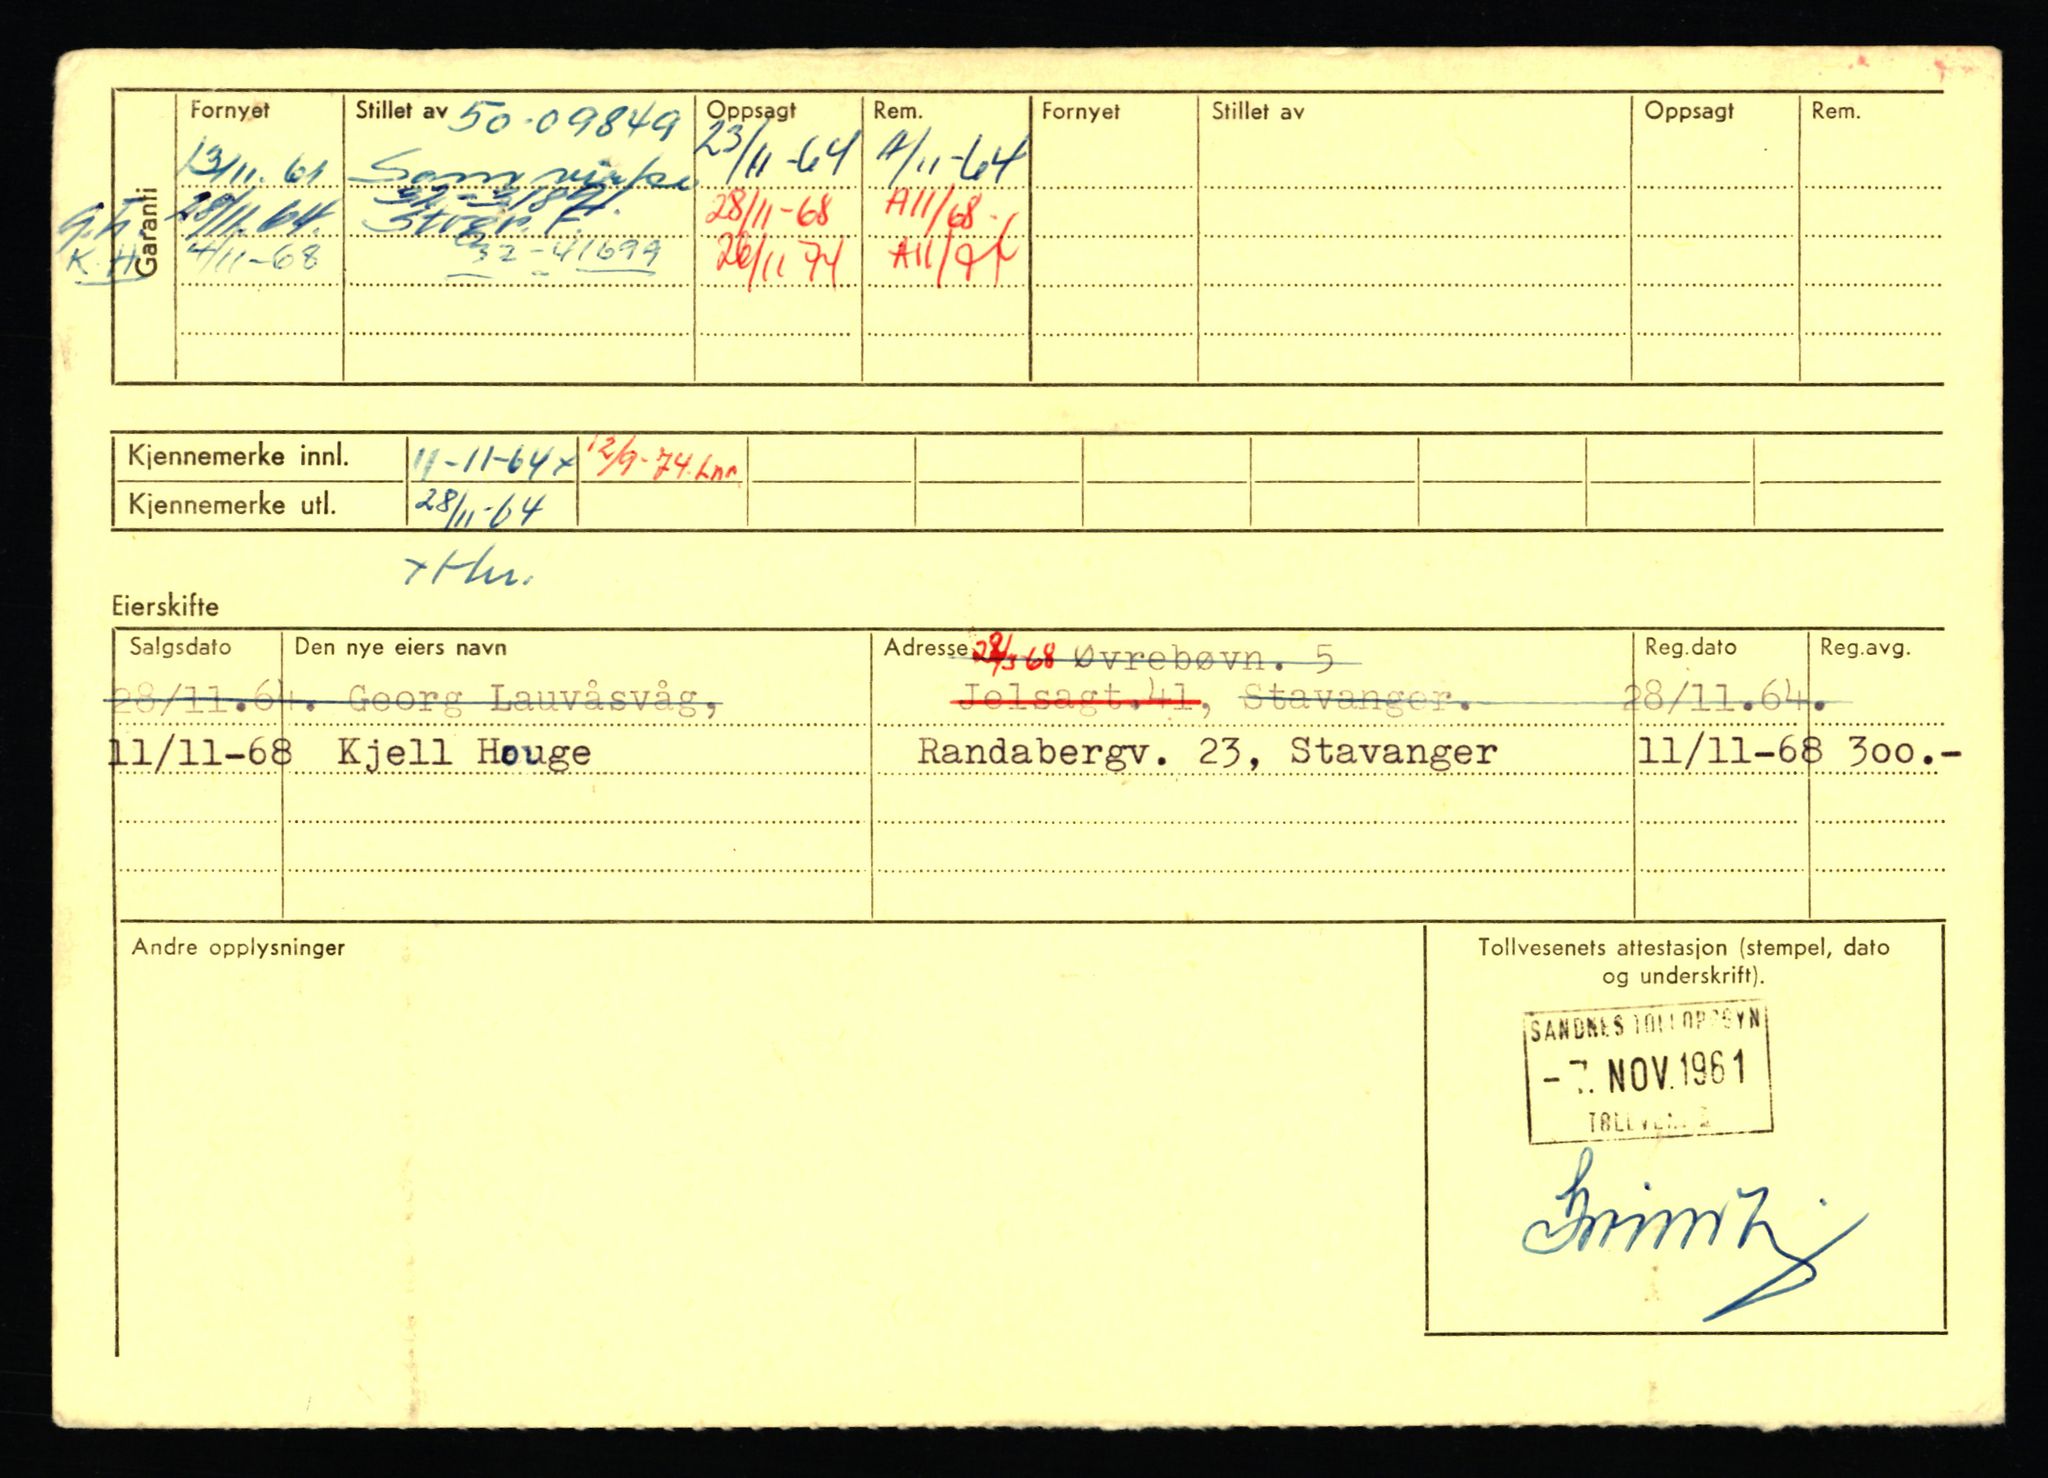 Fornyet Stillet av 50-09849 Oppsagt Rem. Fornyet Stillet av Oppsagt Rem.
13/11.61 Samvirke 23/11-64 A/11-64
Garanti
28/11.64. 28/11-68 A11/68
K.H. 4/11-68 32-41699 26/11 74 A11/74
Kjennemerke innl. 11-11-64 x 12/9-74. Lnr
Kjennemerke utl. 28/11-64
x Hnr.
Eierskifte
Salgsdato Den nye eiers navn Adresse 68 Øvrebøvn. 5 Reg.dato Reg.avg.
28/11.64. Georg Lauvåsvåg, Jelsagt.41, Stavanger. 28/11.64.
11/11-68 Kjell Houge Randabergv. 23, Stavanger 11/11-68 300.-
Andre opplysninger
Tollvesenets attestasjon (stempel, dato
og underskrift).
SANDNES TOLLOPPSYN
-7. NOV. 1961